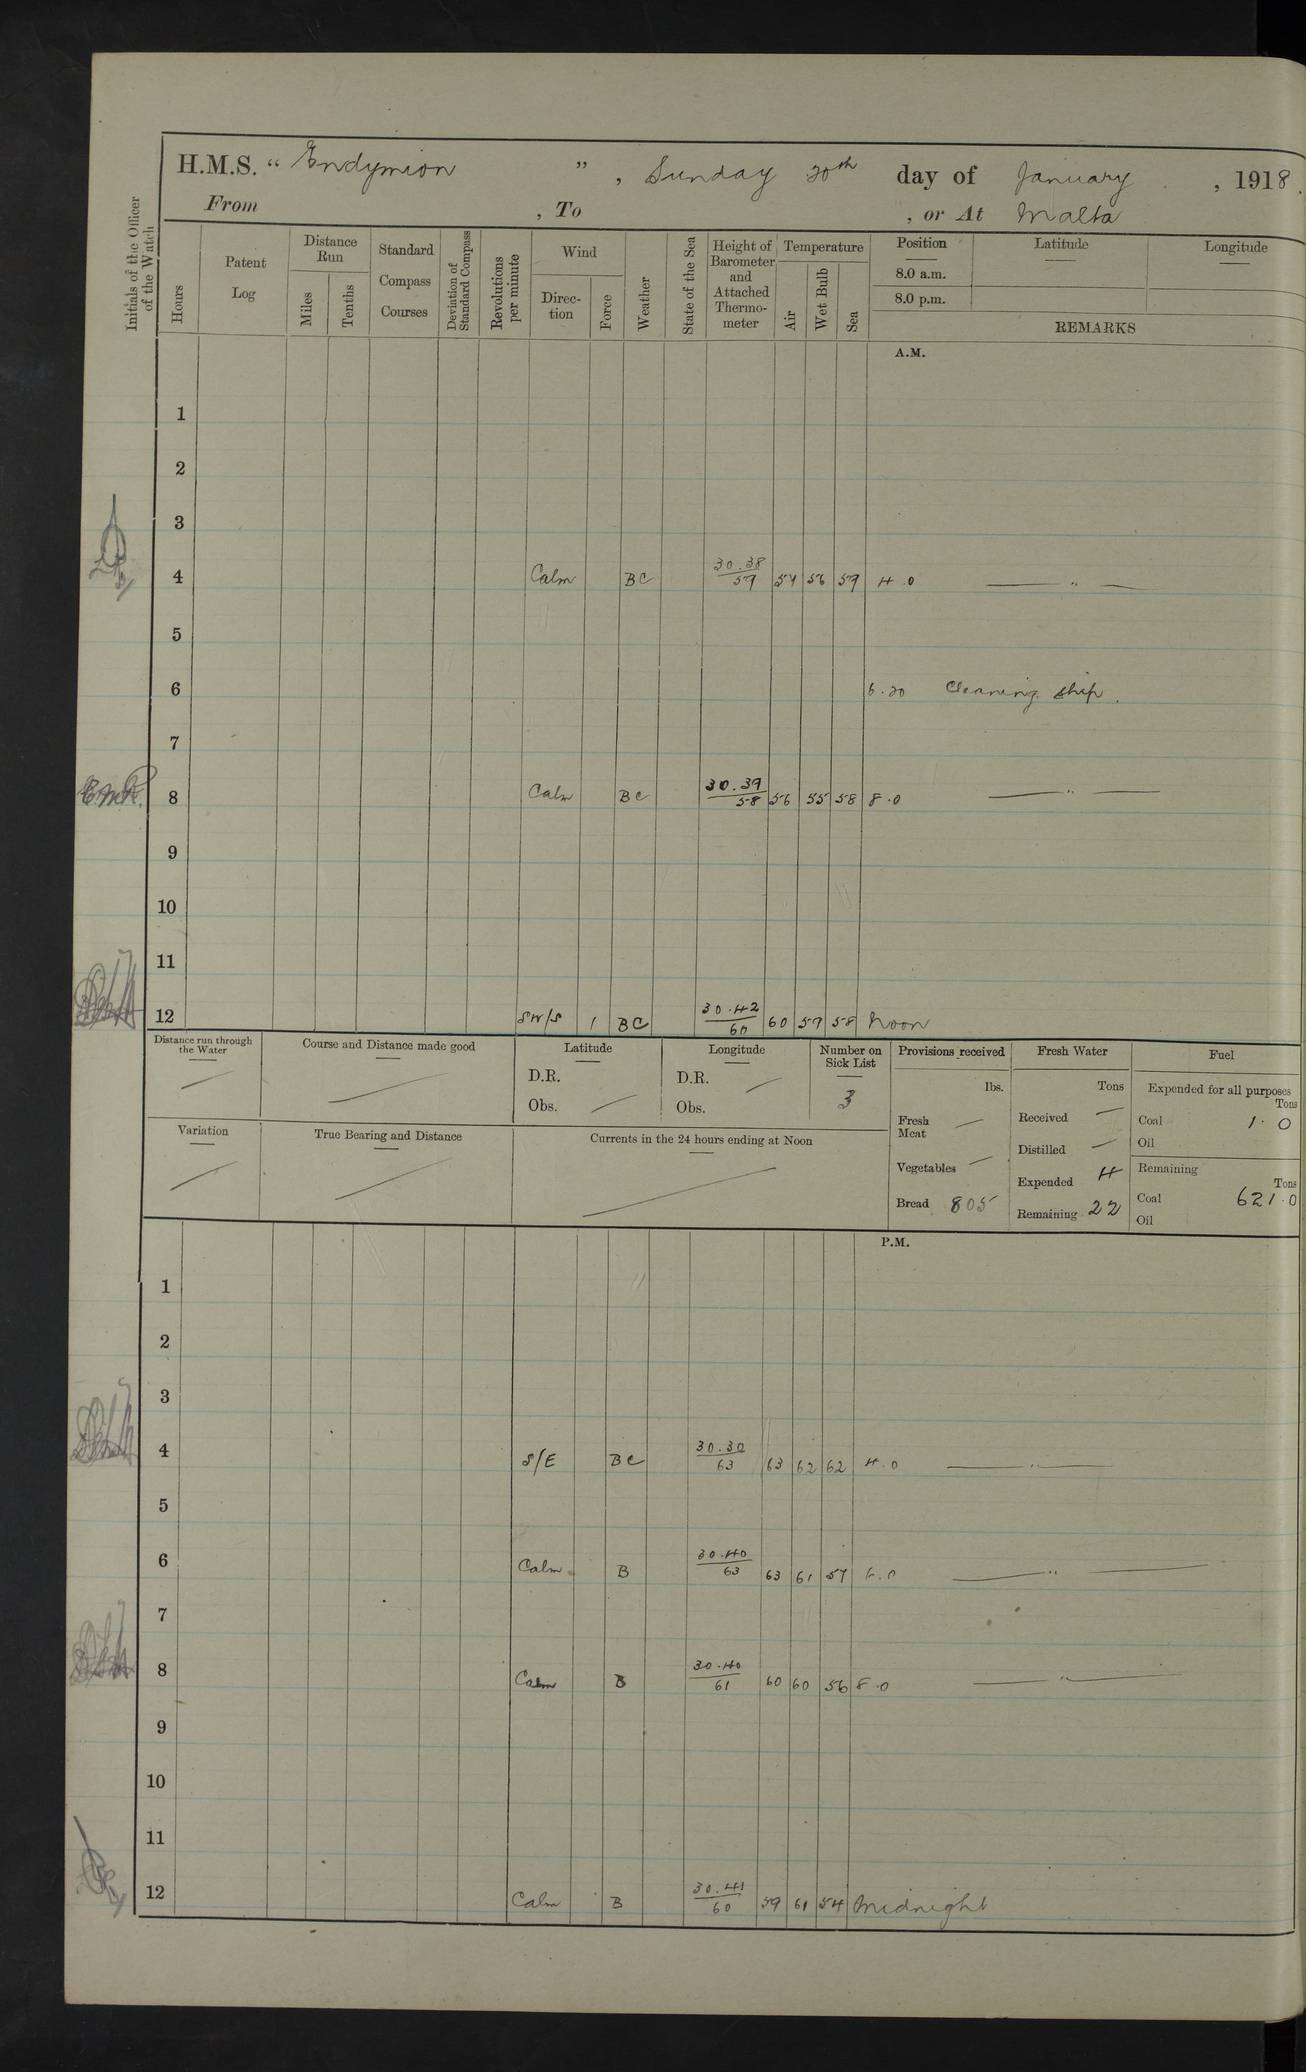 H.M.S. “ Endymion ” , Sunday 20th day of January , 1918.
From , To , or At Malta
Initials of the Officer of the Watch
Hours
Patent Log
Distance Run
Miles
Tenths
Standard Compass Courses
Deviation of Standard Compass
Revolutions per minute
Wind
Direc-tion
Force
Weather
State of the Sea
Height of Barometer and Attached Thermo-meter
Temperature
Air
Wet Bulb
Sea
Position
8.0 a.m.
8.0 p.m.
Latitude
Longitude
REMARKS
A.M.
1
2
3
4 Calm BC 30.38/59 56 59 4.0 — " —
5
6 6.20 Cleaning ship.
7
8 Calm BC 30.39/58 56 55 58 8.0 — " —
9
10
11
12 SW/S 1 BC 30.42/60 60 59 58 Noon
Distance run through the Water
Course and Distance made good
Latitude
D.R.
Obs.
Longitude
D.R.
Obs.
Number on Sick List
3
Variation
True Bearing and Distance
Currents in the 24 hours ending at Noon
Provisions received
lbs.
Fresh Meat —
Vegetables —
Bread 805
Fresh Water
Tons
Received —
Distilled —
Expended 4
Remaining 22
Fuel
Expended for all purposes
Tons
Coal 1.0
Oil
Remaining
Tons
Coal 621.0
Oil
P.M.
1
2
3
4 S/E BC 30.30/63 63 62 62 4.0 — " —
5
6 Calm B 30.40/63 63 61 57 6.0 — " —
7
8 Calm B 30.40/61 60 60 56 8.0 — " —
9
10
11
12 Calm B 30.41/60 59 61 54 Midnight